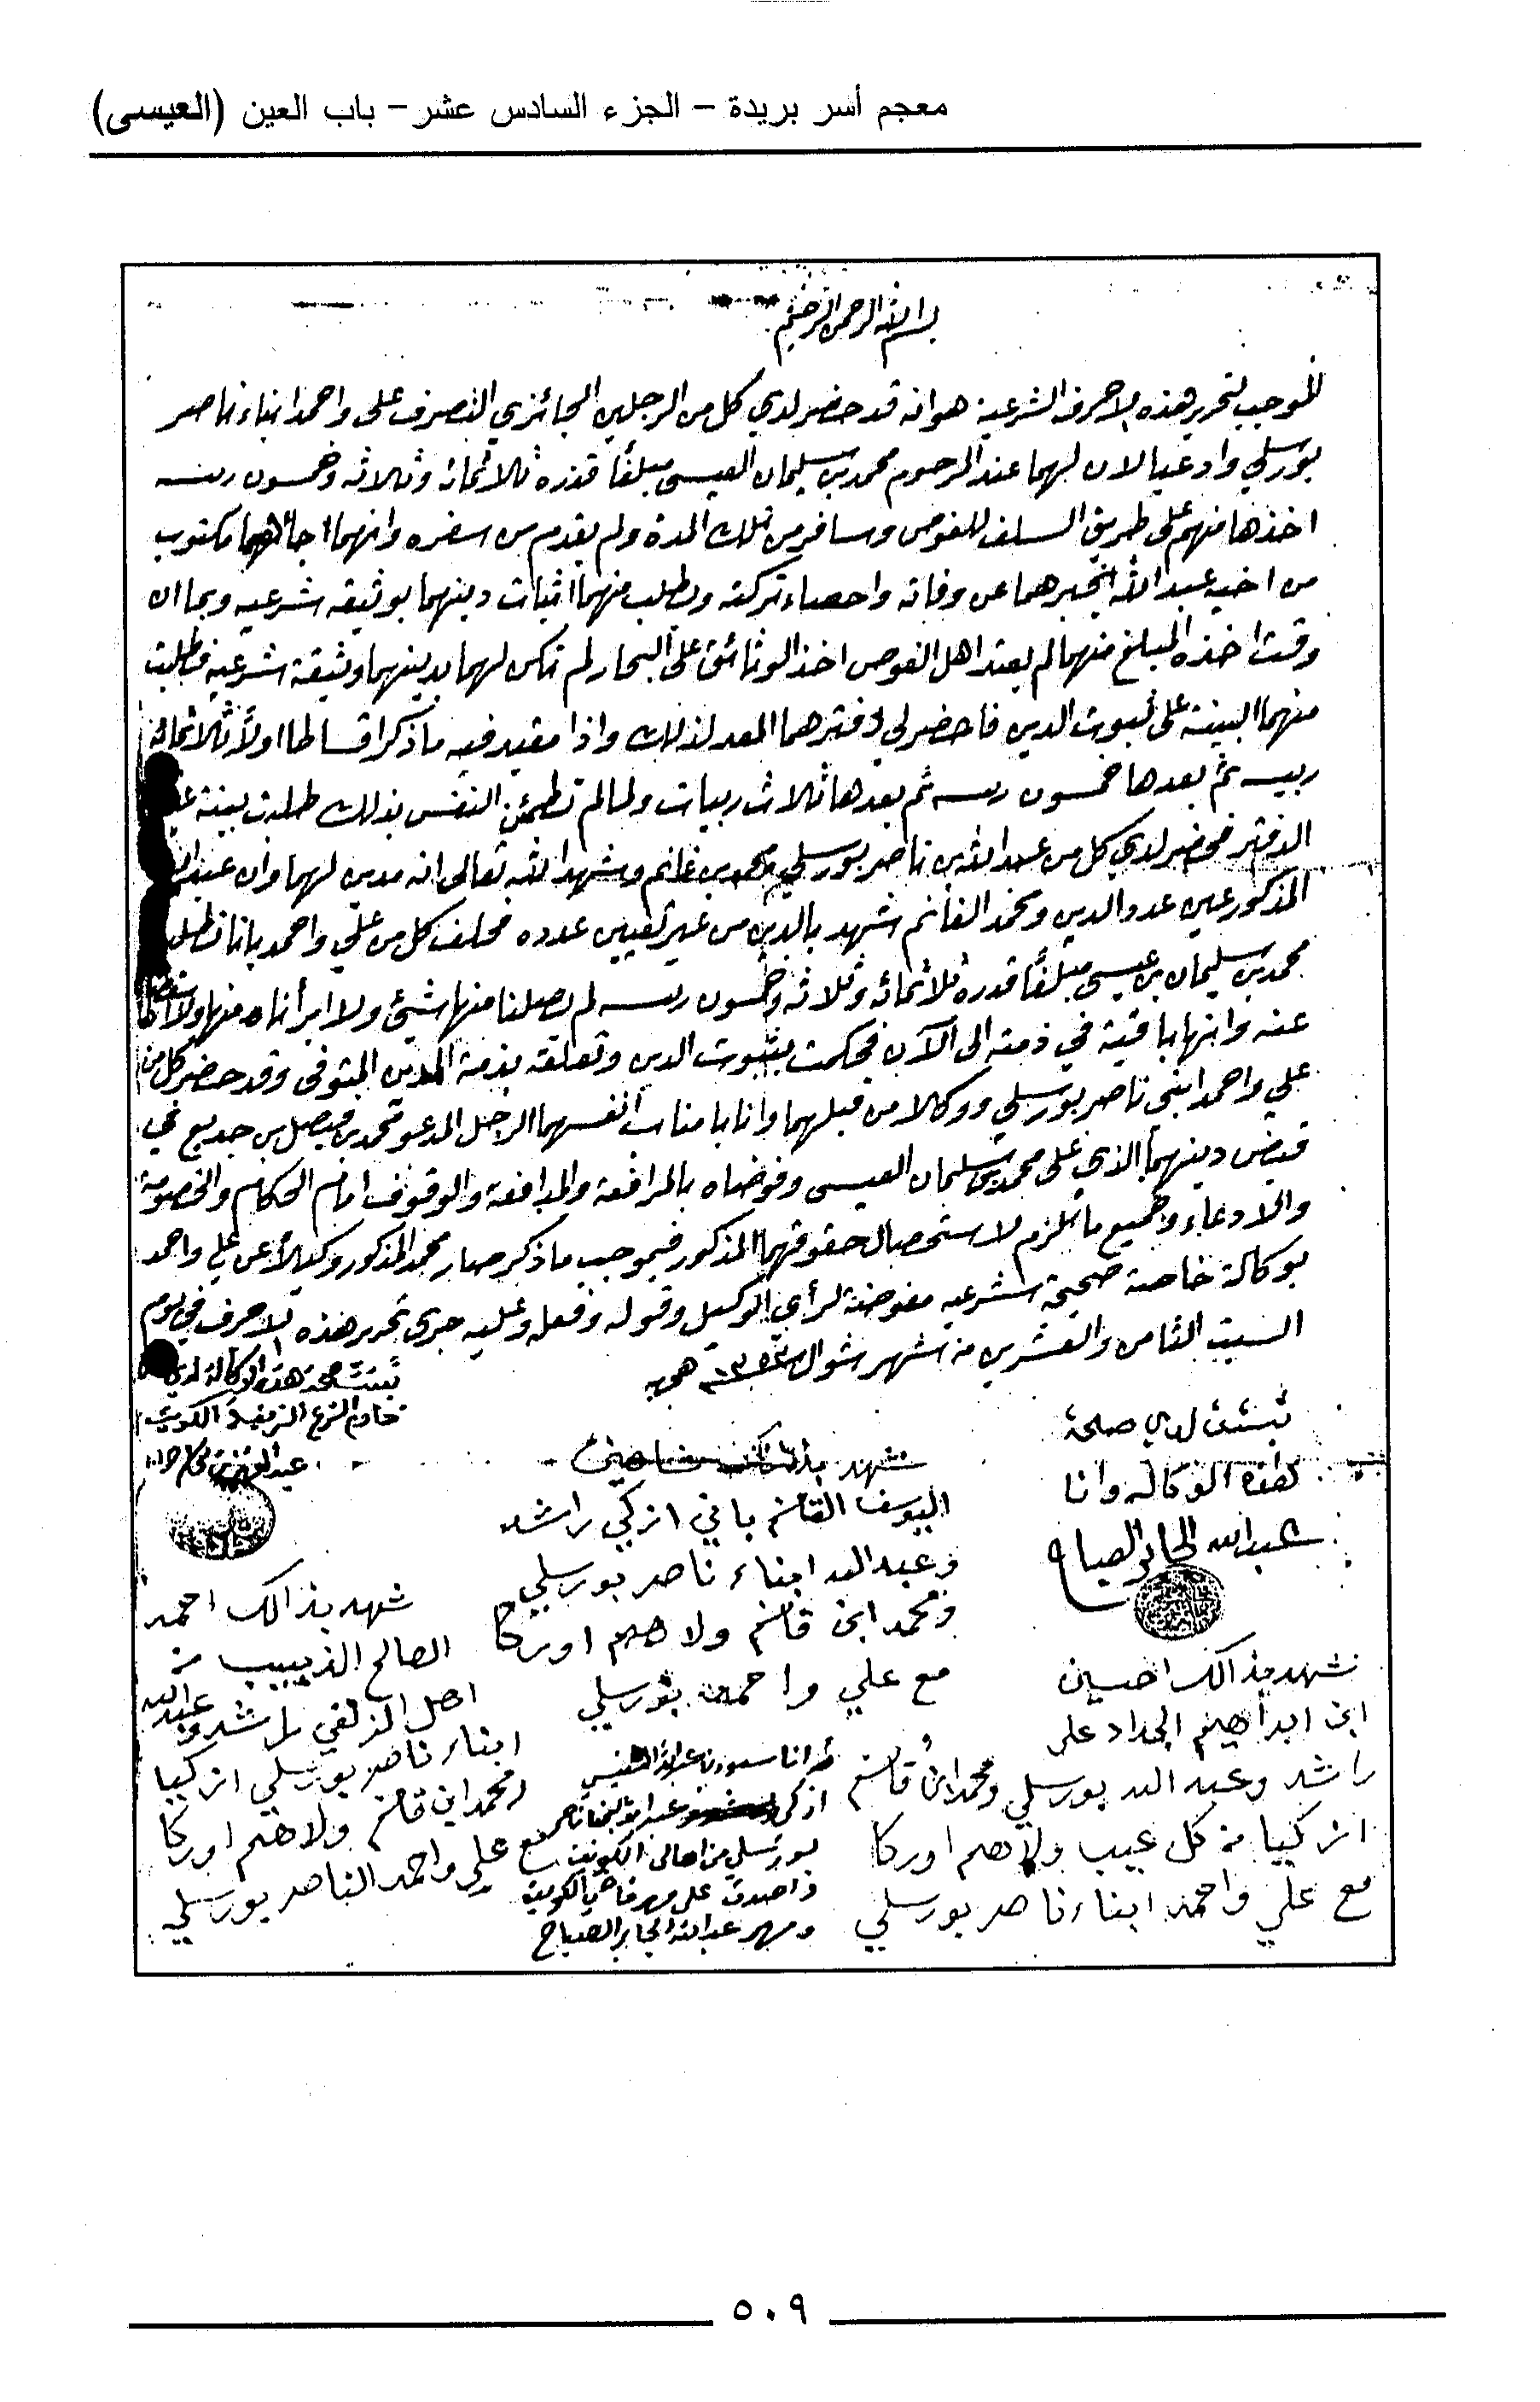 معجم أسر بريدة – الجزء السادس عشر – باب العين (العيسى)
بسم الله الرحمن الرحيم
الموجب لتحرير هذه الاحرف الشرعية هو انه قد حضر لدي كل من الرجلين الجائزي التصرف علي واحمد ابناء ناصر
بورسلي وادعيا لان لهما عند المرحوم محمد بن سليمان العيسى مبلغا قدره ثلاثمائة وثلاثه وخمسون ربيه
اخذها منهم على طريق السلف للغوص وسافر من تلك المدة ولم يقدم من سفره وانهما اجائهما مكتوب
من اخيه عبد الله يخبرهما عن وفاته واحصاء تركته ويطلب منهما اثبات دينهما بوثيقه شرعيه وبما ان
وقت اخذه المبلغ منهما لم يعتد اهل الغوص اخذ الوثائق على البحار لم تكن لهما بدينهما وثيقة شرعيه فطلبت
منهما البينة على ثبوت الدين فأحضر لي دفترهما المعد لذلك واذا مقيد فيه ما ذكر اقساطا اولاً ثلاثمائة
ربيه ثم بعدها خمسون ربيه ثم بعدها ثلاث ربيات ولما لم تطمئن النفس بذلك طلبت بينة غير
الدفتر فحضر لدي كل من عبد الله بن ناصر بورسلي ومحمد بن غانم وشهدا لله تعالى انه مدين لهما وان عبد الله
المذكور عين عدد الدين ومحمد الغانم شهد بالدين من غير تعيين عدده فحلف كل من علي واحمد باننا نطلب
محمد بن سليمان بن عيسى مبلغاً قدره ثلاثمائه وثلاثه وخمسون ربيه لم يصلنا منها شيئ ولا ابرأناه منها ولا
عنه وانها باقية في ذمته الى الآن فحكمت بثبوت الدين وتعلقه بذمة المدين المتوفى وقد حضر كل من
علي واحمد ابنى ناصر بورسلي ووكلا من قبلهما وانابا مناب انفسهما الرجل المدعو محمد بن فيصل بن جديع في
قبض دينهما الذي على محمد بن سليمان العيسى وفوضاه بالمرافعة والمدافعة والوقوف امام الحكام والخصومة
والادعاء وجميع ما يلزم لاستحصال حقوقهما المذكور فبموجب ما ذكر صار محمد المذكور وكيلاً عن علي واحمد
بوكالة خاصة صحيحة شرعيه مفوضة لرأي الوكيل وقوله وفعله وعليه جرى تحرير هذه الاحرف في يوم
السبت الثامن والعشرين من شهر شوال سنة ١٣٥٣ هجريه
ثبتت صحة هذه الوكالة لدي
خادم الشرع الشريف الكويت
عبد العزيز
ثبتت لدي صحة
هذه الوكاله وانا
عبدالله الجابر الصباح
شهد بذالك
اليوسف القانم باني ازكي راشد
وعبد الله ابناء ناصر بورسلي
ومحمد ابن قانم ولا هم اوركا
مع علي واحمد بورسلي
شهد بذالك احمد
الصالح الذييب من
اهل الزلفي راشد وعبد الله
ابناء ناصر بورسلي ازكيا
ومحمد ابن قانم ولا هم اوركا
مع علي واحمد الناصر بورسلي
شهد بذالك احسين
ابن ابراهيم الحداد على
راشد وعبد الله بورسلي ومحمد ابن قانم
ازكيا من كل عيب ولا هم اوركا
مع علي واحمد ابناء ناصر بورسلي
بورسلي من اهالي الكويت
واصدق على مهر قاضي الكويت
ومهر عبدالله الجابر الصباح
٥٠٩